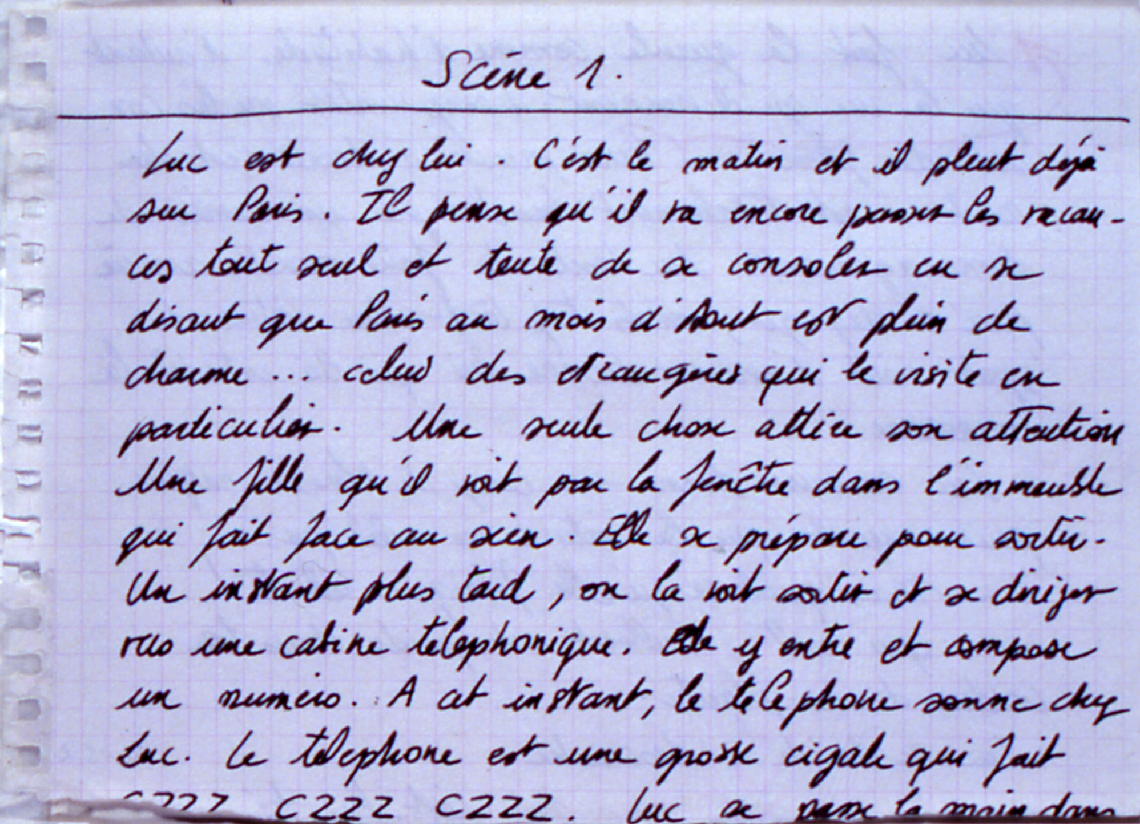 Scène 1.
Luc est chez lui. C'est le matin et il pleut déjà
sur Paris. Il pense qu'il va encore passer les vacan-
ces tout seul et tente de se consoler en se
disant que Paris au mois d'Aout est plein de
charme... celui des étrangères qui le visite en
particulier. Une seule chose attire son attention
Une fille qu'il voit par la fenêtre dans l'immeuble
qui fait face au sien. Elle se prépare pour sortir.
Un instant plus tard, on la voit sortir et se diriger
vers une cabine téléphonique. Elle y entre et compose
un numéro. A cet instant, le téléphone sonne chez
Luc. Le téléphone est une grosse cigale qui fait
CZZZ CZZZ CZZZ. Luc se passe la main dans